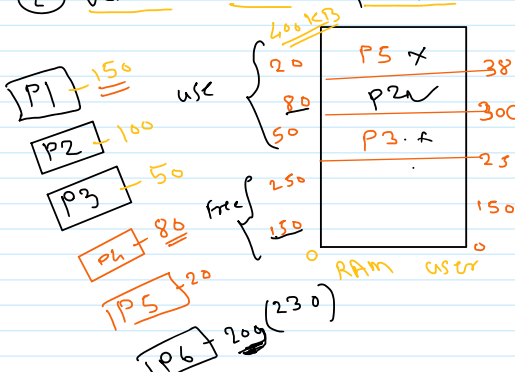 400KB
P1 - 150
P2 - 100
P3 - 50
P4 - 80
P5 - 20
P6 - 200 (230)
use
20
80
50
Free
250
150
0
P5 x
P2
P3
38
300
25
150
0
RAM user